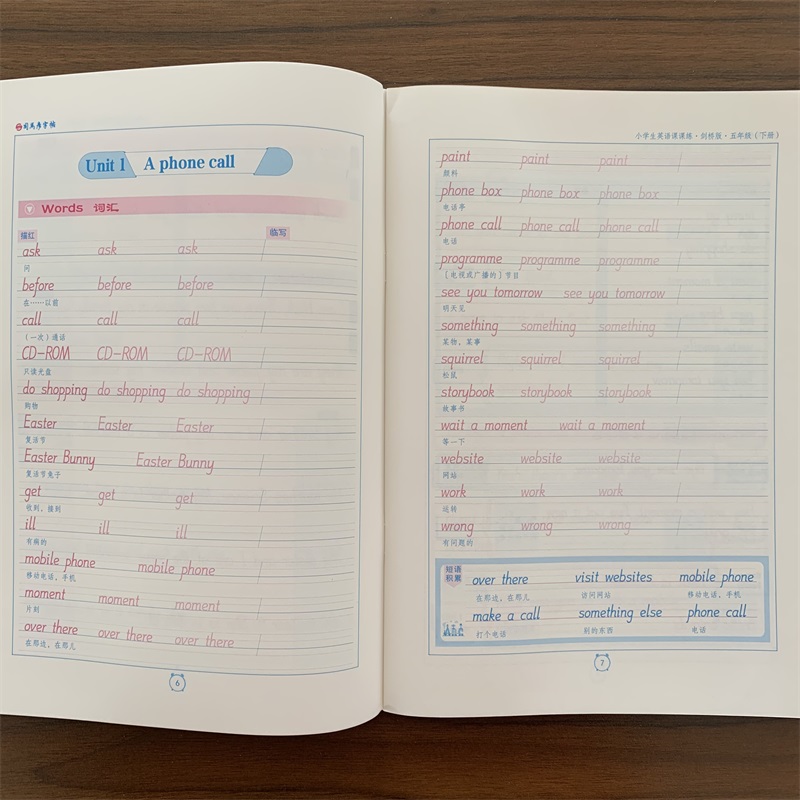 司马彦字帖
Unit 1 A phone call
Words 词汇
描红 临写
ask ask ask
问
before before before
在……以前
call call call
(一次)通话
CD-ROM CD-ROM CD-ROM
只读光盘
do shopping do shopping do shopping
购物
Easter Easter Easter
复活节
Easter Bunny Easter Bunny
复活节兔子
get get get
收到,接到
ill ill ill
有病的
mobile phone mobile phone
移动电话,手机
moment moment moment
片刻
over there over there over there
在那边,在那儿
6
小学生英语课课练·剑桥版·五年级(下册)
paint paint paint
颜料
phone box phone box phone box
电话亭
phone call phone call phone call
电话
programme programme programme
(电视或广播的)节目
see you tomorrow see you tomorrow
明天见
something something something
某物,某事
squirrel squirrel squirrel
松鼠
storybook storybook storybook
故事书
wait a moment wait a moment
等一下
website website website
网站
work work work
运转
wrong wrong wrong
有问题的
短语积累
over there visit websites mobile phone
在那边,在那儿 访问网站 移动电话,手机
make a call something else phone call
打个电话 别的东西 电话
ABC
7